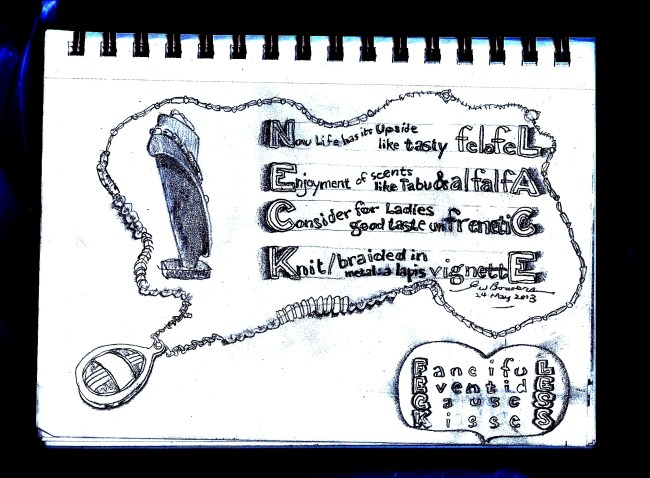 Now Life has its Upside
like tasty felafeL
Enjoyment of scents
like Tabu & alfalfA
Consider for Ladies
good taste unfrenetiC
Knit/braided in
metal & lapis vignettE
24 May 2013
FancifuL
EventidE
CauseS
KisseS